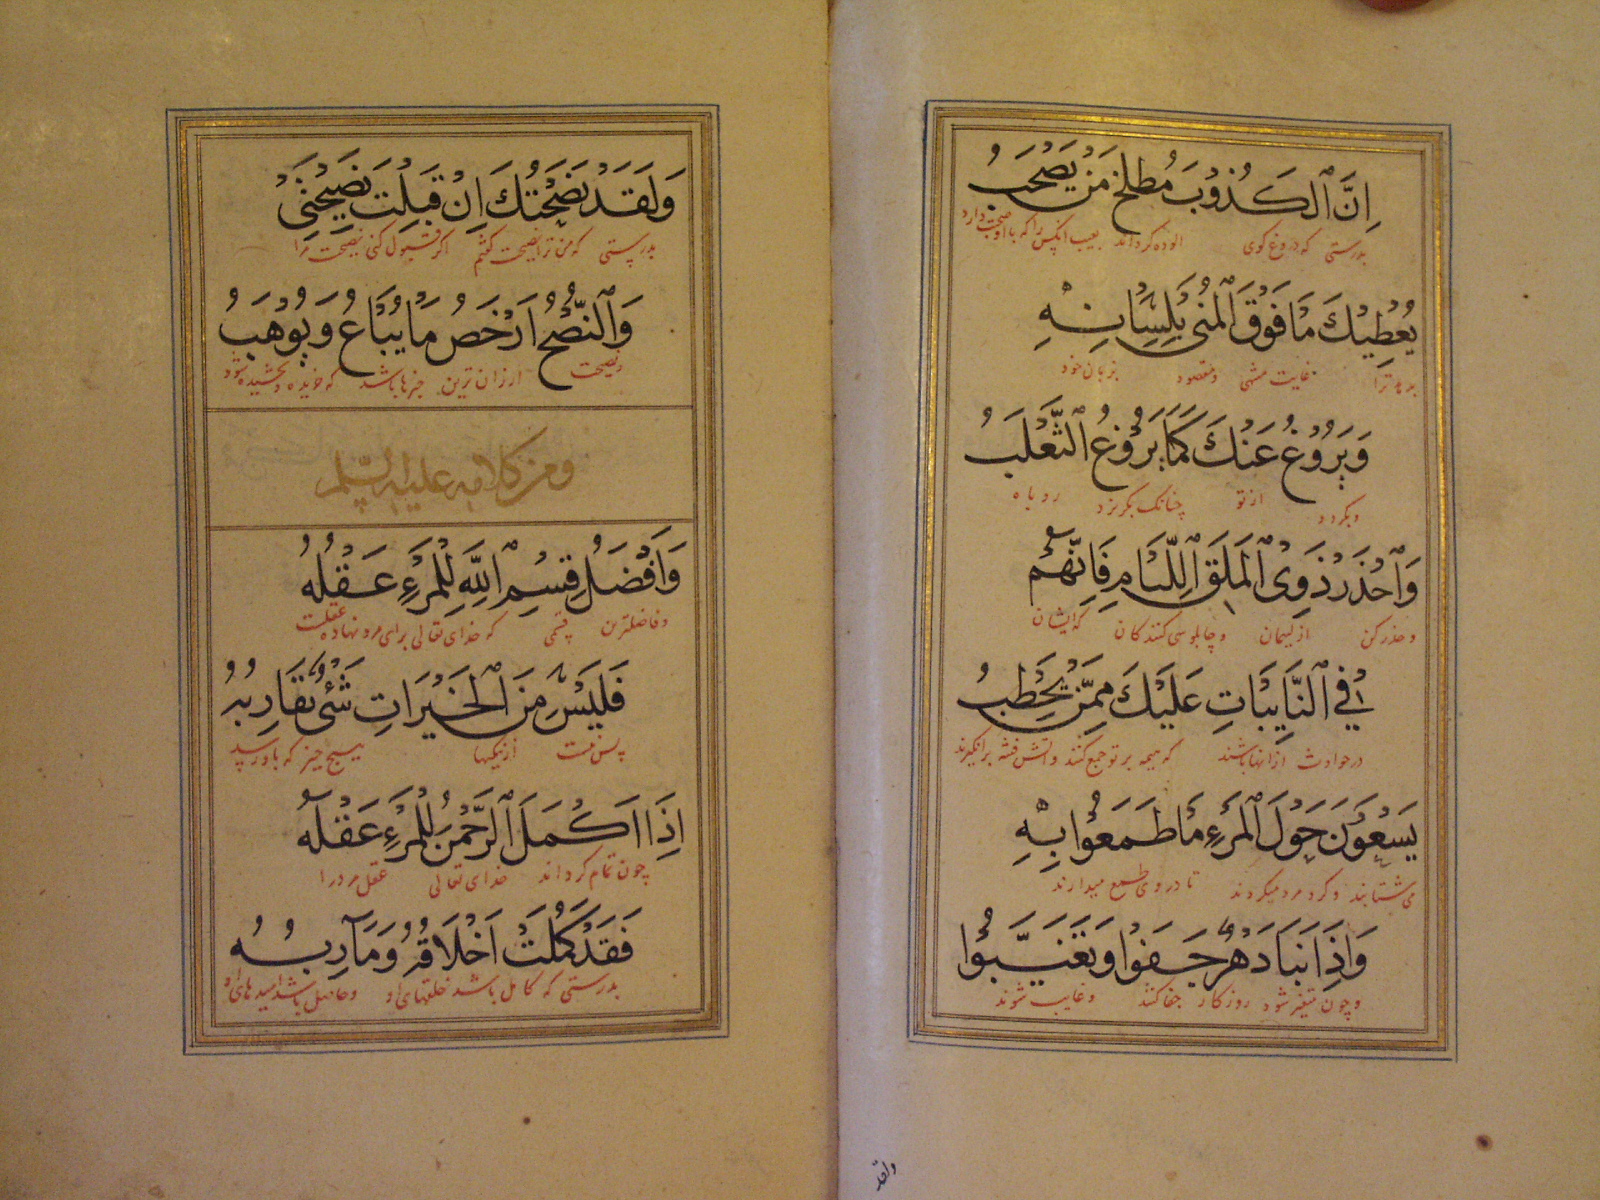 اِنَّ ٱلكَذُوْبَ مُطلخ مَنْ يَصْحَبُ
بدرستی که دروغ کوی الوده کرداند بعیب انکس را که با او صحبت دارد
يُعْطِيْكَ مَا فَوْقَ ٱلمُنٰى بِلِسَانِهٖ
بدهد ترا غایت منتهی و مقصود بزبان خود
وَيَرُوْغُ عَنْكَ كَمَا يَرُوْغُ ٱلثَّعْلَبُ
وبکردد از تو چنانک بکریزد روباه
وَٱحْذَرْ ذَوِى ٱلمَلَقِ ٱللِّئَامِ فَاِنَّهُمْ
وحذر کن از لئیمان وچاپلوسی کنندکان که ایشان
فِي ٱلنَّايِبَاتِ عَلَيْكَ مِمَّنْ يَحْطِبُ
در حوادث از انها باشند که هیمه بر تو جمع کنند واتش فتنه برانکیزند
يَسْعَوْنَ حَوْلَ ٱلمَرْءِ مَا طَمَعُوْا بِهٖ
می شتابند وکرد مرد میکردند تا در وی طمع میدارند
وَاِذَا نَبَا دَهْرٌ جَفَوْا وَتَغَيَّبُوْا
وچون متغیر شود روزکار جفا کنند وغایب شوند
ولقد
وَلَقَدْ نَصَحْتُكَ اِنْ قَبِلْتَ نَصِيْحَتِىْ
بدرستی که من ترا نصیحت کنم اکر قبول کنی نصیحت مرا
وَٱلنُّصْحُ اَرْخَصُ مَا يُبَاعُ وَيُوْهَبُ
ونصیحت ارزان ترین چیزها باشد که خریده وبخشیده شود
ومن كلامه عليه السلم
وَاَفْضَلُ قِسْمِ ٱللّٰهِ لِلْمَرْءِ عَقْلُهُ
وفاضلترین قسمی که خدای تعالی برای مرد نهاده عقلست
فَلَيْسَ مِنَ ٱلخَيْرَاتِ شَىْءٌ يُقَارِبُهُ
پس نیست از نیکیها هیچ چیز که با او رسد
اِذَا اَكْمَلَ ٱلرَّحْمٰنُ لِلْمَرْءِ عَقْلَهُ
چون تمام کرداند خدای تعالی عقل مرد را
فَقَدْ كَمُلَتْ اَخْلَاقُهُ وَمَآرِبُهُ
بدرستی که کامل باشد خلقهای او وحاصل باشد امیدهای او